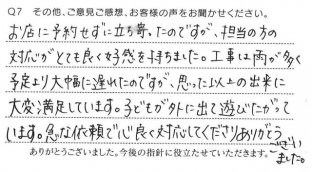 Q7 その他、ご意見ご感想、お客様の声をお聞かせください。
お店に予約せずに立ち寄ったのですが、担当の方の
対応がとても良く好感を持ちました。工事は雨が多く
予定より大幅に遅れたのですが、思った以上の出来に
大変満足しています。子どもが外に出て遊びたがって
います。急な依頼で心良く対応してくださりありがとう
ございました。
ありがとうございました。今後の指針に役立たせていただきます。